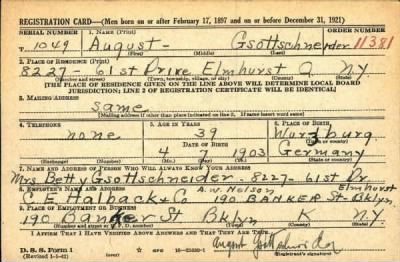 REGISTRATION CARD—(Men born on or after February 17, 1897 and on or before December 31, 1921)
SERIAL NUMBER 1. NAME (Print) ORDER NUMBER
T 1049 August - Gsottschneider 11381
(First) (Middle) (Last)
2. PLACE OF RESIDENCE (Print)
8227 - 61st Drive Elmhurst Q N.Y.
(Number and street) (Town, township, village, or city) (County) (State)
[THE PLACE OF RESIDENCE GIVEN ON THE LINE ABOVE WILL DETERMINE LOCAL BOARD
JURISDICTION; LINE 2 OF REGISTRATION CERTIFICATE WILL BE IDENTICAL]
3. MAILING ADDRESS
same
[Mailing address if other than place indicated on line 2. If same insert word same]
4. TELEPHONE 5. AGE IN YEARS 6. PLACE OF BIRTH
none 39 Wurzburg
DATE OF BIRTH (Town or county)
4 7 1903 Germany
(Exchange) (Number) (Mo.) (Day) (Yr.) (State or country)
7. NAME AND ADDRESS OF PERSON WHO WILL ALWAYS KNOW YOUR ADDRESS
Mrs Betty Gsottschneider - 8227 - 61st Dr.
Elmhurst
8. EMPLOYER'S NAME AND ADDRESS A.W. Nelson
C. E. Halback & Co 190 BANKER ST - Bklyn.
9. PLACE OF EMPLOYMENT OR BUSINESS
190 Banker St Bklyn K N.Y.
(Number and street or R. F. D. number) (Town) (County) (State)
I AFFIRM THAT I HAVE VERIFIED ABOVE ANSWERS AND THAT THEY ARE TRUE.
D. S. S. Form 1
(Revised 1-1-42) (over)
August Gsottschneider
(Registrant's signature)